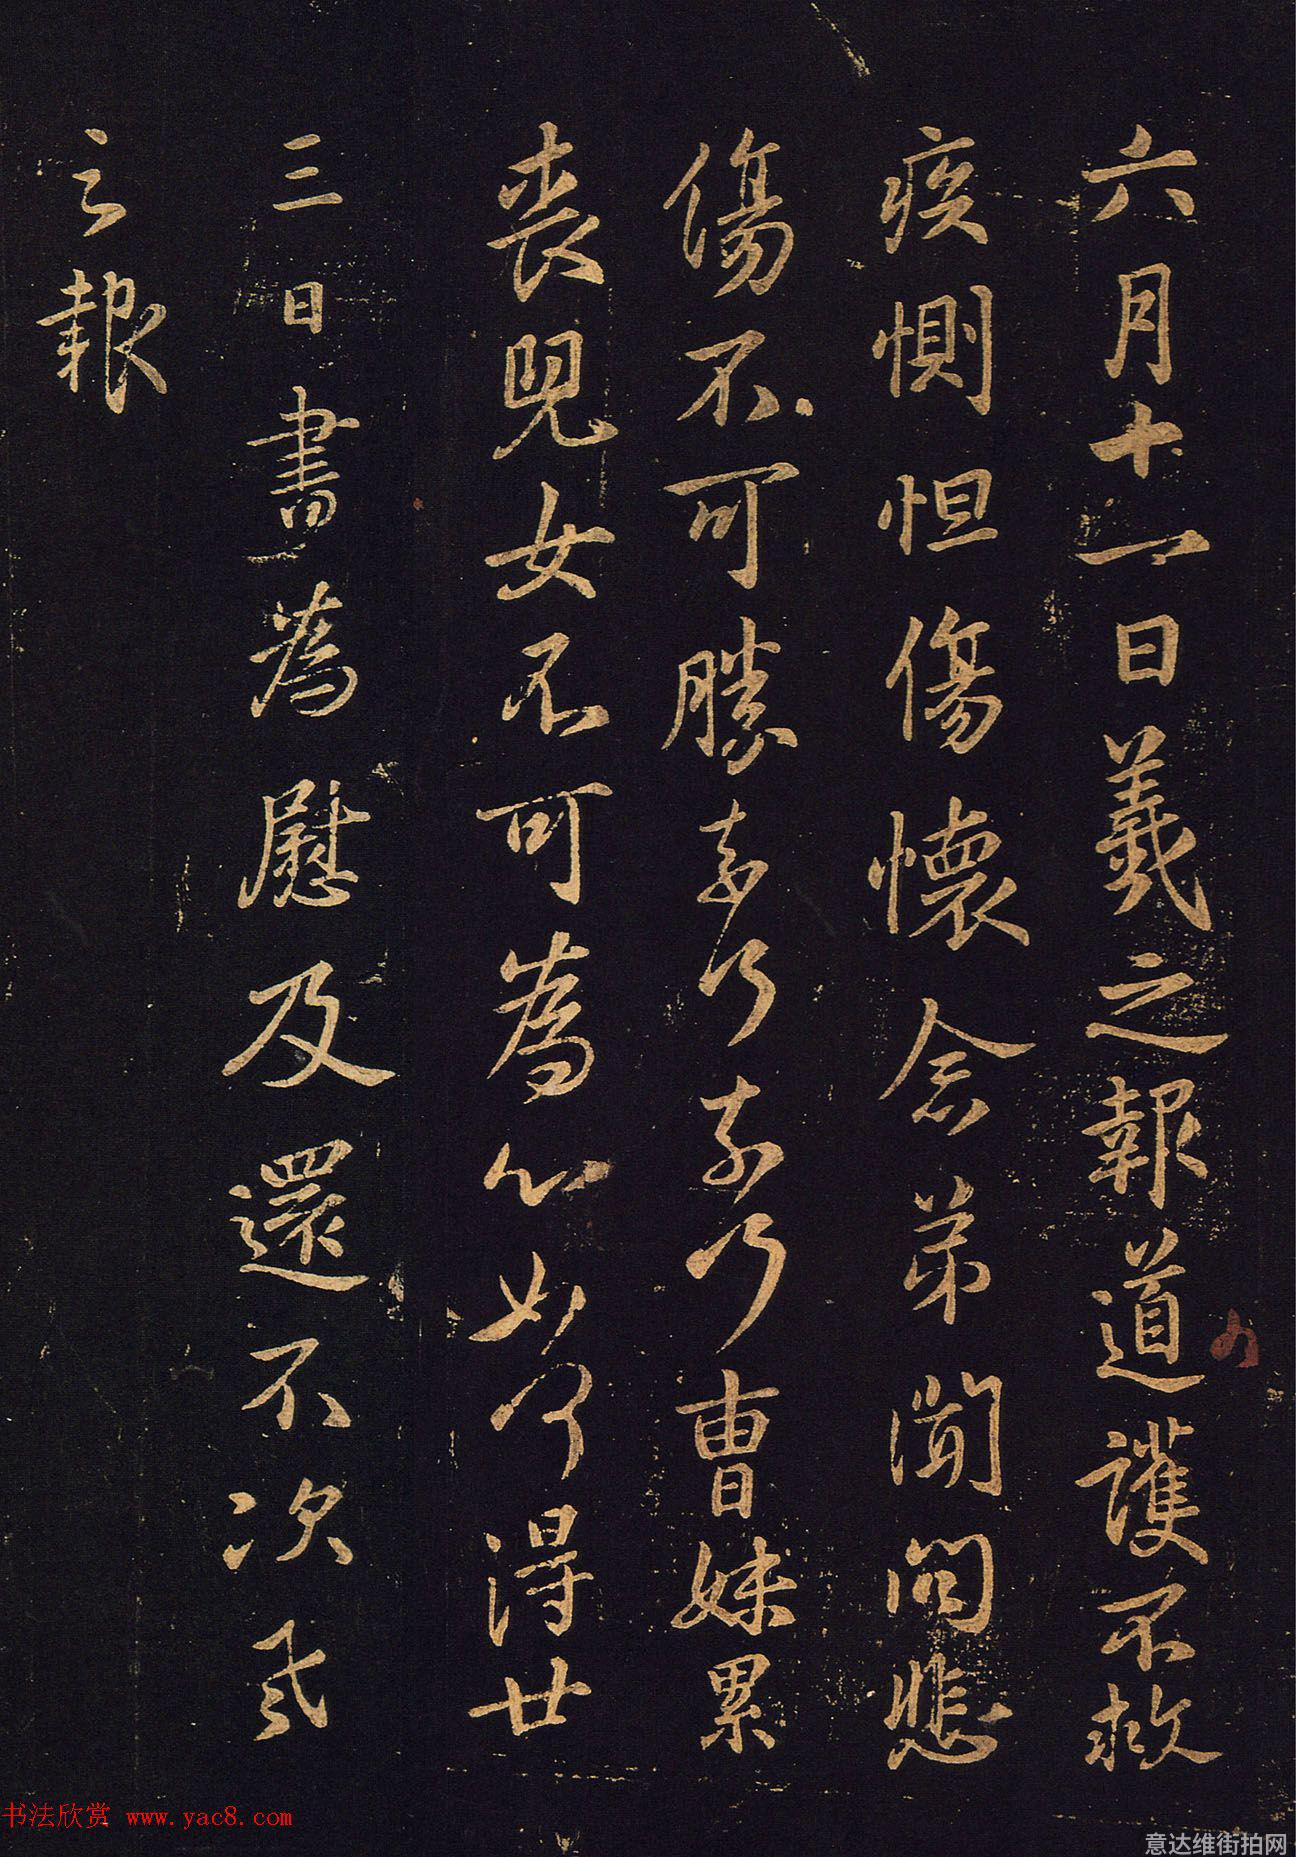 六月十一日羲之報道護不救
疾惻怛傷懷念弟聞問悲
傷不可勝奈何奈何曹妹累
喪兒女不可為心如何得廿
三日書為慰及還不次羲
之報
书法欣赏 www.yac8.com
意达维街拍网